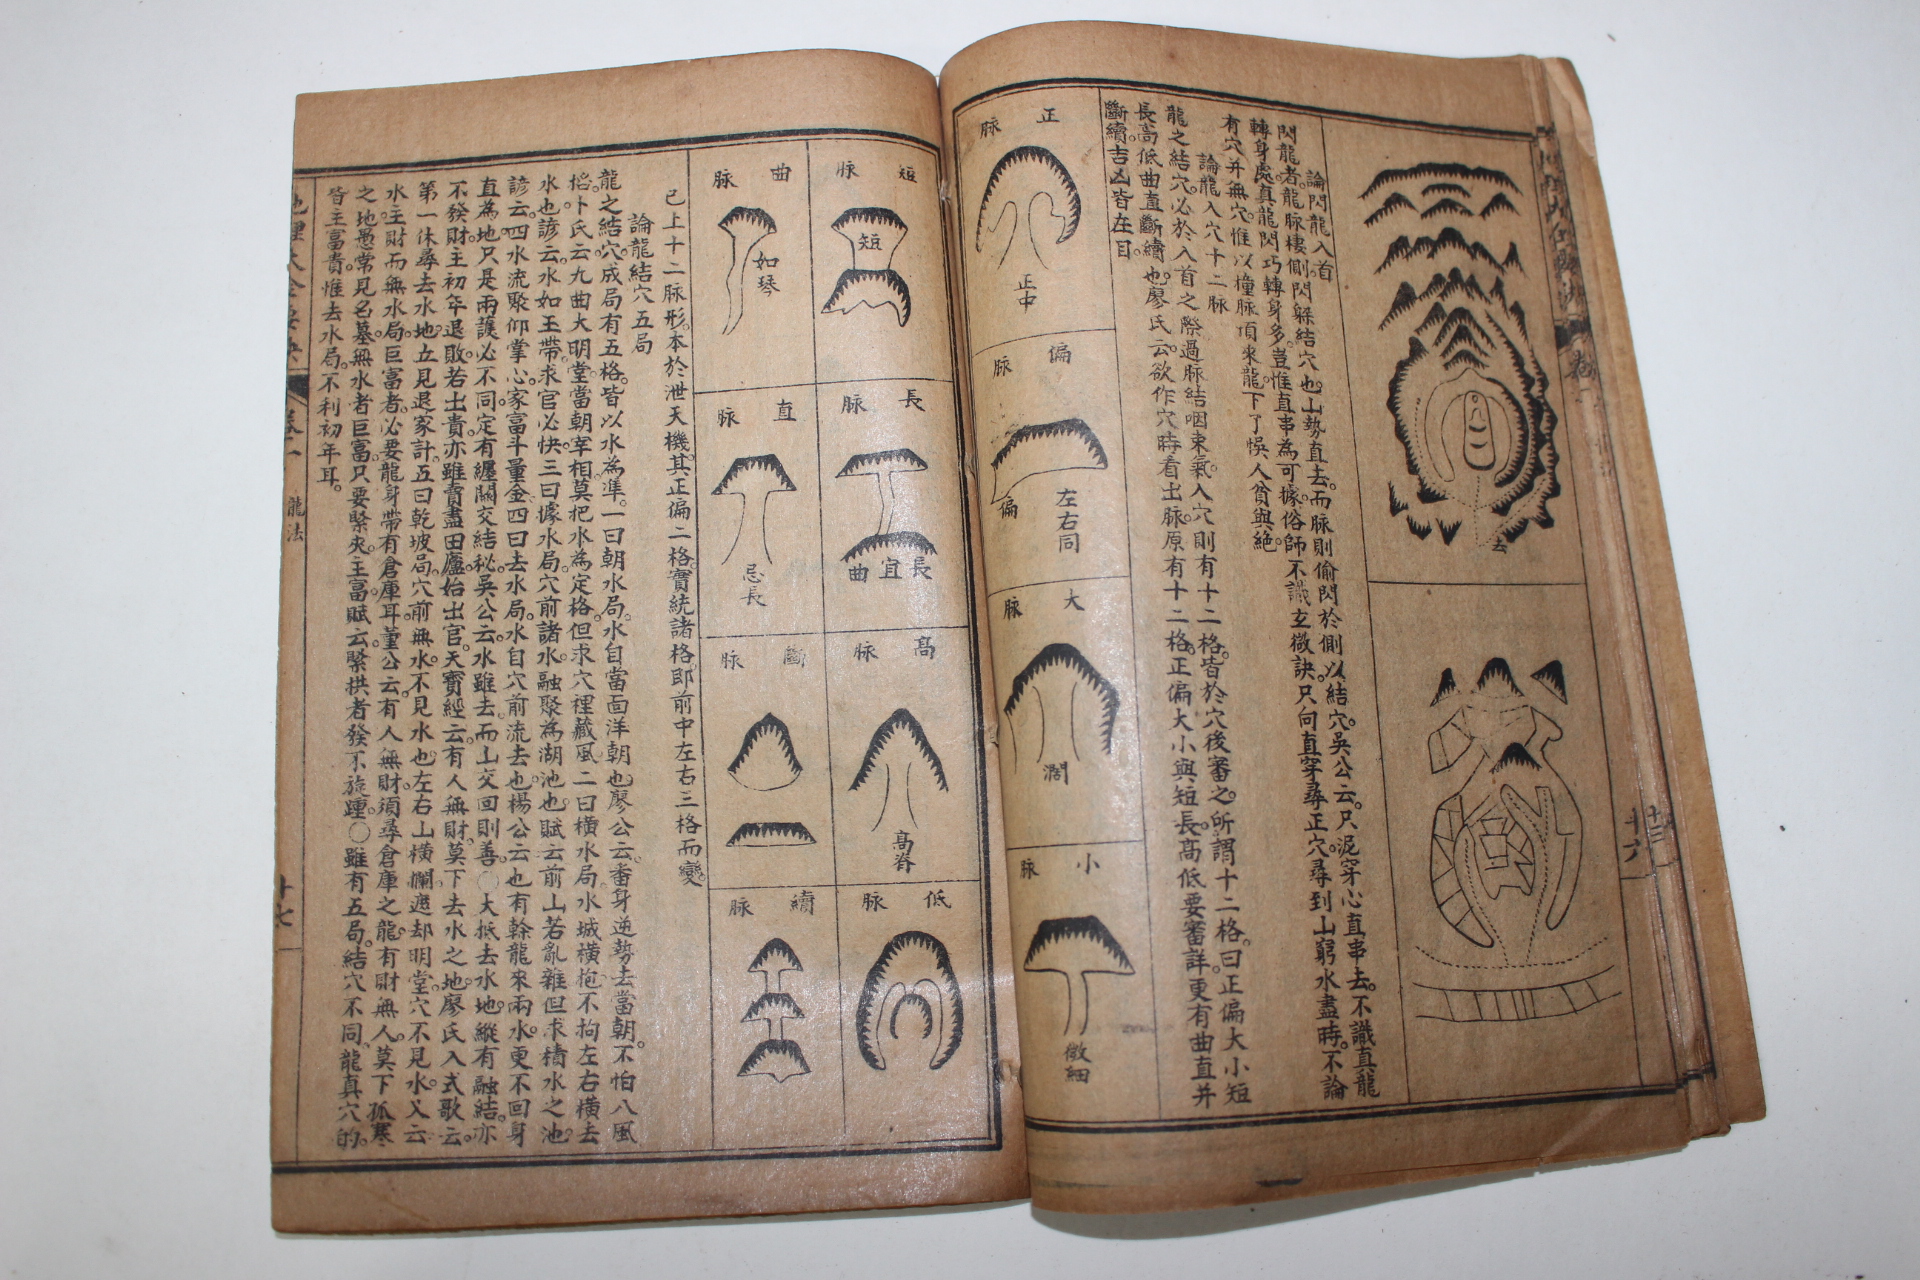 去
論閃龍入首
閃龍者龍脉棲側閃躲結穴也山勢直去而脉則偷閃於側以結穴吳公云只泥穿心直串去不識真龍
轉身處真龍閃巧轉身多豈惟直串為可據俗師不識玄微訣只向直穿尋正穴尋到山窮水盡時不論
有穴并無穴惟以撞脉頂來龍下了悞人貧與絶
論龍入穴十二脉
龍之結穴必於入首之際過脉結咽束氣入穴則有十二格皆於穴後審之所謂十二格曰正偏大小短
長高低曲直斷續也廖氏云欲作穴時看出脉原有十二格正偏大小與短長高低要審詳更有曲直并
斷續吉凶皆在目
正脉
正中
偏脉
偏
左右同
大脉
濶
小脉
微細
短脉
短
長脉
長宜曲
高脉
高脊
低脉
曲脉
如琴
直脉
忌長
斷脉
續脉
已上十二脉形本於泄天機其正偏二格實統諸格即前中左右三格而變
論龍結穴五局
龍之結穴成局有五格皆以水為準一曰朝水局水自當面洋朝也廖公云番身逆勢去當朝不怕八風
搖卜氏云九曲大明堂當朝宰相莫把水為定格但求穴裡藏風二曰橫水局水城橫抱不拘左右橫去
水也諺云水如玉帶求官必快三曰據水局穴前諸水融聚為湖池也賦云前山若亂雜但求積水之池
諺云四水流聚仰掌心家富斗量金四曰去水局水自穴前流去也楊公云也有幹龍來兩水更不回身
直為地只是兩護必不同定有纒關交結秘吳公云水雖去而山交回則善〇大抵去水地縱有融結亦
不發財主初年退敗若出貴亦雖賣盡田廬始出官天寶經云有人無財莫下去水之地廖氏入式歌云
第一休尋去水地立見退家計五曰乾坡局穴前無水不見水也左右山橫攔遮却明堂穴不見水乂云
水主財而無水局巨富者必要龍身帶有倉庫耳董公云有人無財須尋倉庫之龍有財無人莫下孤寒
之地愚常見名墓無水者巨富只要緊夾主富賦云緊拱者發不旋踵〇雖有五局結穴不同龍真穴的
皆主富貴惟去水局不利初年耳
龍法
十七